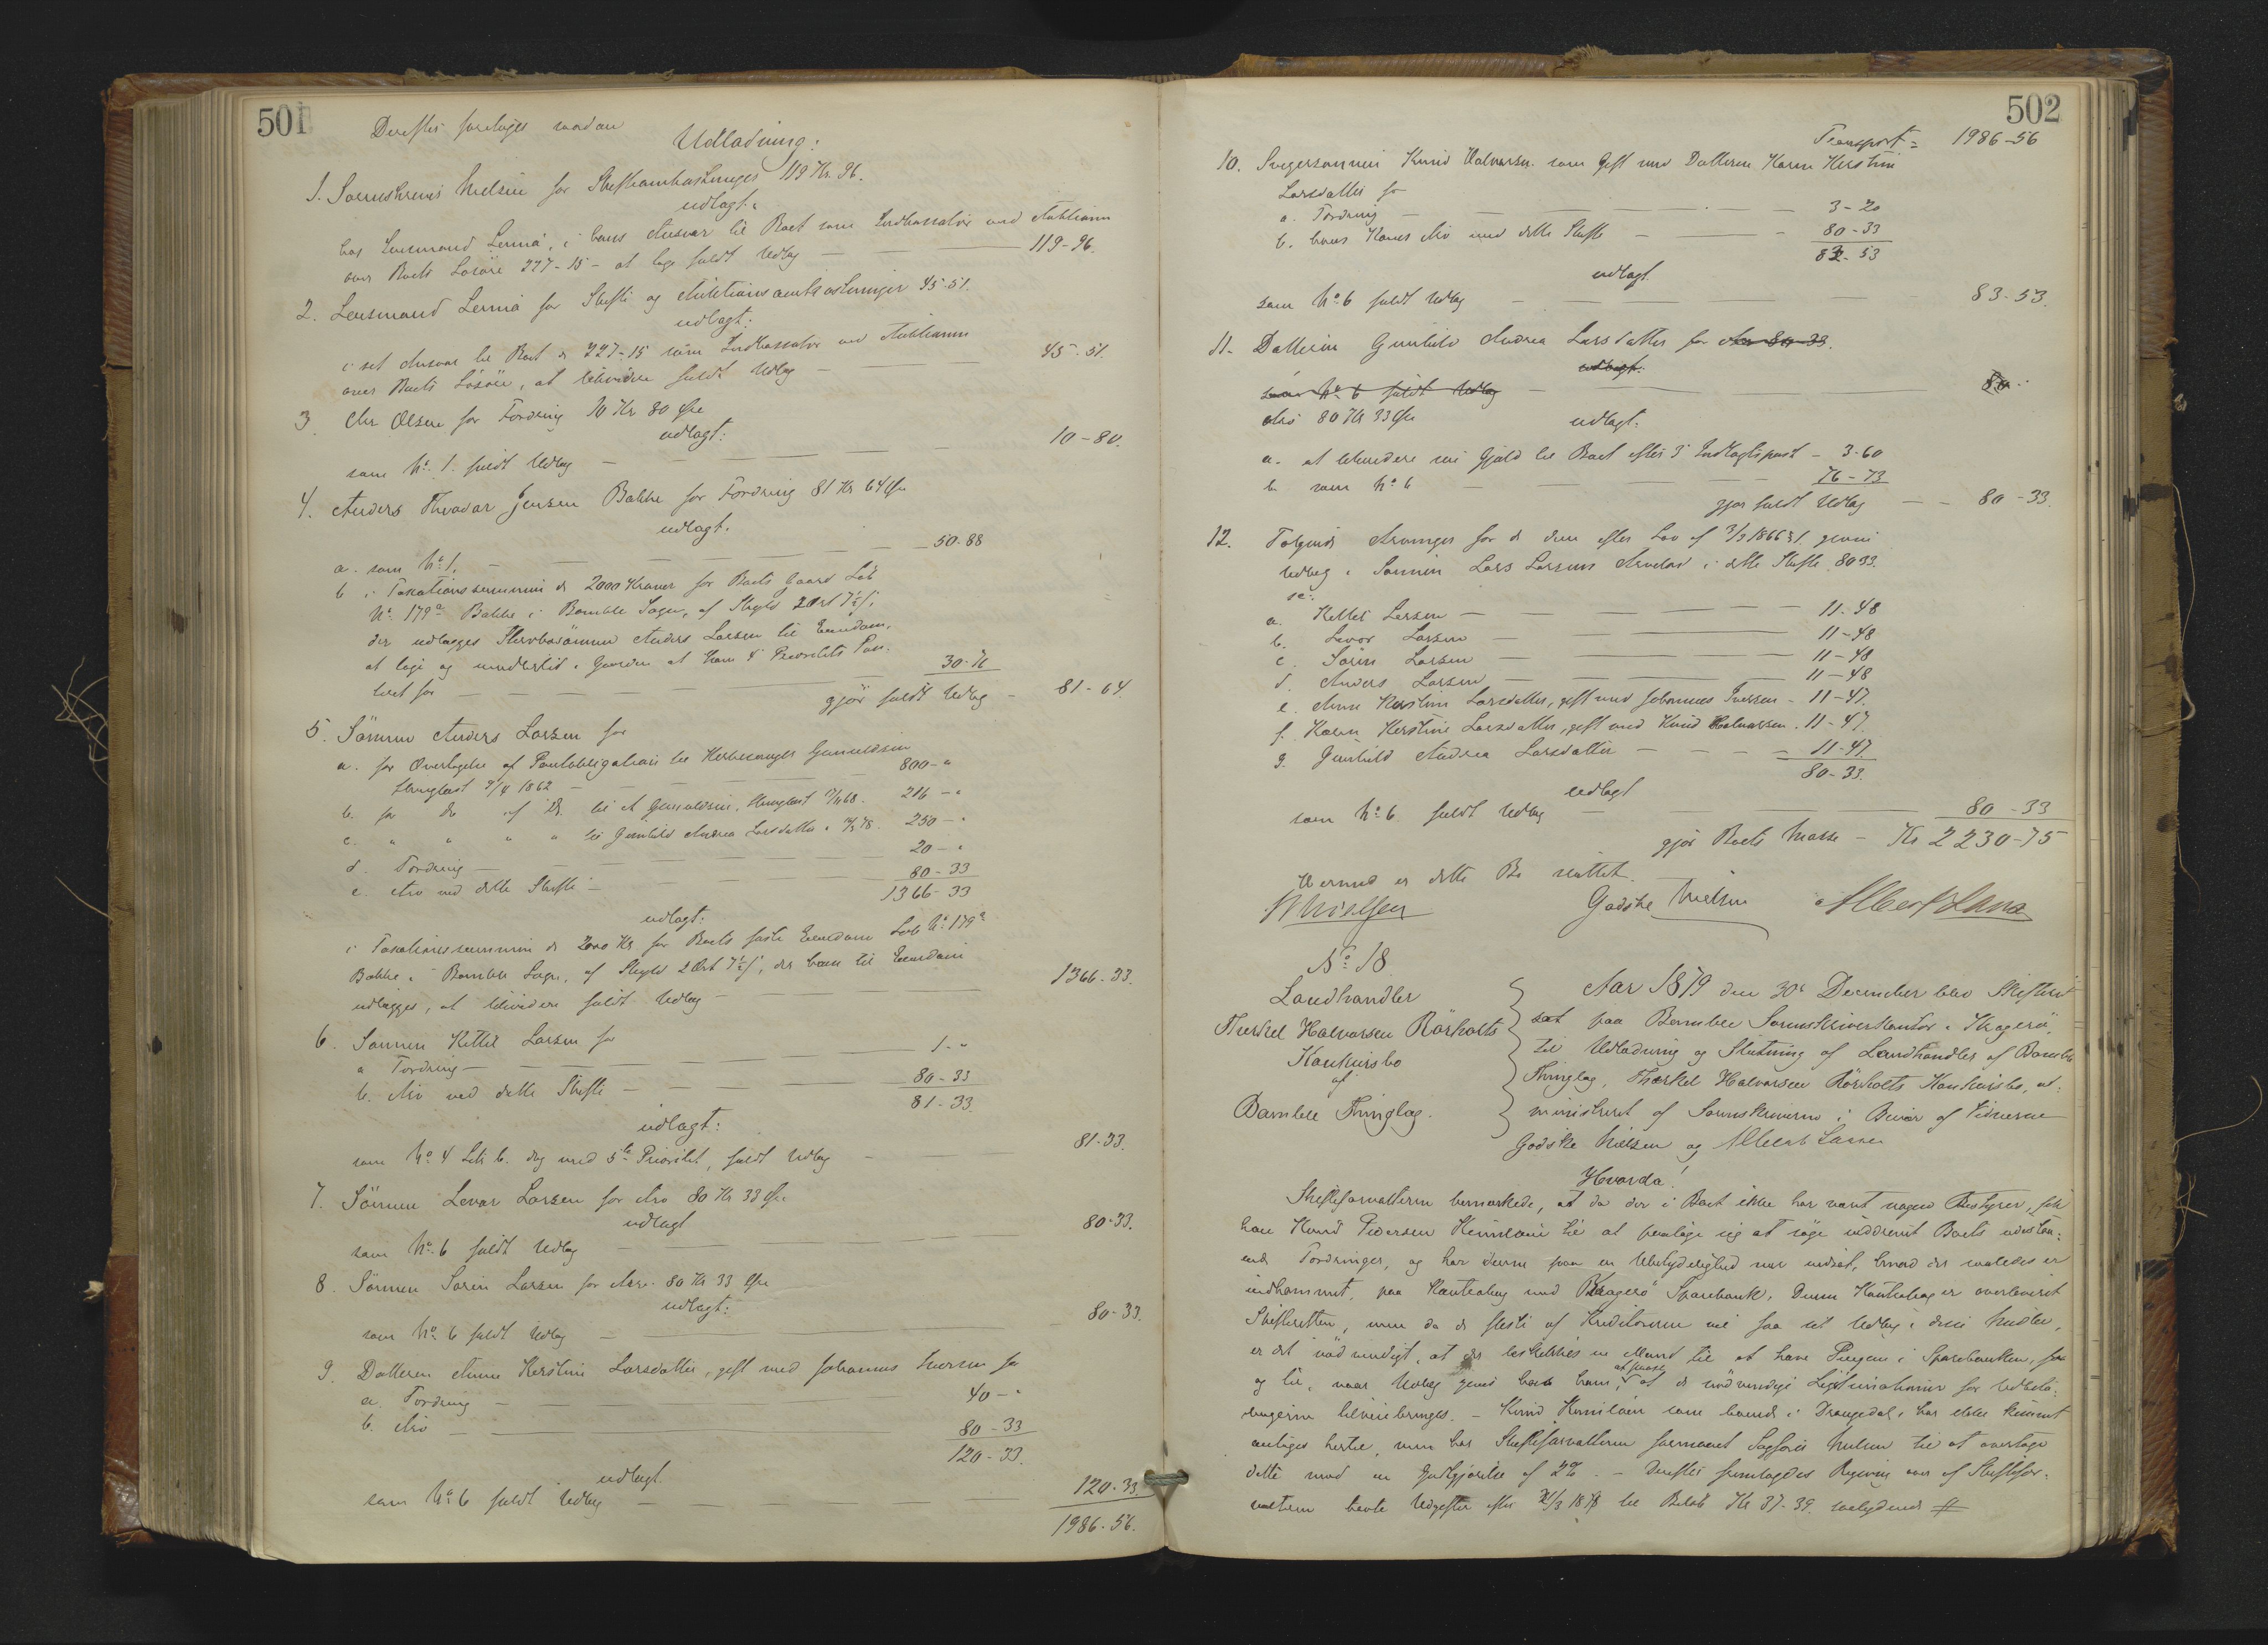 501
Derefter foretoges saadan
Udlodning:
1. Sorenskriver Nielsen for Skifteomkostninger 119 Kr. 96.
udlagt:
hos Lensmand Lennæ, i hans Ansvar til Boet som Indkassator ved Auktionen
over Boets Løsøre 227-15 - at tage fuldt Udlæg — 119-96.
2. Lensmand Lennæ for Skifte og Auktionsomkostninger 45-51.
udlagt:
i sit Ansvar til Boet d 227-15 som Indkassator ved Auktionen
over Boets Løsøre, at likvidere fuldt Udlæg — 45-51.
3. Olsen for Fordring 10 Kr 80 Øre
udlagt:
som No 1. fuldt Udlæg — 10-80.
4. Anders Jensen Bakke for Fordring 81 Kr 64 Øre
udlagt.
a. som No 1. — 50-88
b i Taxationssummen d 2000 Kroner for Boets Gaard Løb
No 179a Bakke i Bamble Sogn, af Skyld 2 Ort 7½ ß,
der udlægges Sønnen Anders Larsen til Eiendom,
at tage og i Gaarden at have 4 Prioritets Pan-
teret for — 30-76
gjør fuldt Udlæg — 81-64.
5. Sønnen Anders Larsen for
a. for Overtagelse af Pantobligation til Gunuldsen
thinglæst 9/4 1862 — 800-"
b. for Do af Do til A Gunuldsen, thinglæst 68. 216-"
c. " " " " til Gunhild Andrea Larsdatter 78. 250-"
d. Fordring — 20-"
e. Arv ved dette Skifte — 80-33
1366-33
udlagt:
i Taxationssummen d 2000 Kr for Boets faste Eiendom Løb No 179a
Bakke i Bamble Sogn, af Skyld 2 Ort 7½ ß, der ham til Eiendom
udlægges, at likvidere fuldt Udlæg — 1366-33.
6. Sønnen Kittil Larsen for
a Fordring — 1-"
b. Arv ved dette Skifte — 80-33
81-33.
udlagt:
som No 4 Litr b. dog med 5te Prioritet, fuldt Udlæg — 81-33.
7. Sønnen Levor Larsen for Arv 80 Kr 33 Øre
udlagt
som No 6 fuldt Udlæg — 80-33.
8. Sønnen Søren Larsen for Arv 80 Kr 33 Øre
udlagt:
som No 6 fuldt Udlæg — 80-33.
9. Datteren Anne Kerstine Larsdatter, gift med Johannes Iversen for
a. Fordring — 40-"
b. Arv — 80-33
120-33.
udlagt.
som No 6 fuldt Udlæg — 120-33
1986-56.
502
Transport = 1986-56
10. Svigersønnen Knud Halvorsen som gift med Datteren Karen Kerstine
Larsdatter for
a. Fordring — 3-20
b. hans Kones Arv ved dette Skifte — 80-33
83-53
udlagt
som No 6 fuldt Udlæg — 83-53.
11. Datteren Gunhild Andrea Larsdatter for Arv 80-33.
udlagt:
som No 6 fuldt Udlæg — 80-
Arv 80 Kr 33 Øre
udlagt:
a. at likvidere sin Gjæld til Boet efter 3 Indtægtspost — 3-60
b. som No 6 — 76-73
gjør fuldt Udlæg — 80-33.
12. Følgende Arvinger for d dem efter Lov af 3/3 1866 § 1. givne
Udlæg i Sønnen Lars Larsens Arvelod i dette Skifte 80-33.
sc:
a. Kittil Larsen — 11-48
b. Levor Larsen — 11-48
c. Søren Larsen — 11-48
d. Anders Larsen — 11-48
e. Anne Kerstine Larsdatter, gift med Johannes Iversen - 11-47.
f. Karen Kerstine Larsdatter, gift med Knud Halvorsen. 11-47
g. Gunhild Andrea Larsdatter — 11-47
80-33.
udlagt
som No 6 fuldt Udlæg — 80-33
gjør Boets Masse — Kr 2230-75
Hermed er dette Bo sluttet.
Nielsen Godske Nielsen Albert Lassen
No 18
Landhandler
Therkel Halvorsen Rørholts
Konkursbo
af
Bamble Thinglag.
Aar 1879 den 30te December blev Skifteret
sat paa Bamble Sorenskriverkontor i Kragerø,
til Udlodning og Slutning af Landhandler af Bamble
Thinglag, Therkel Halvorsen Rørholts Konkursbo, ad-
ministreret af Sorenskriveren i Overvær af Vidnerne
Godske Nielsen og Albert Lassen
Hvorda!
Skifteforvalteren bemærkede, at da der i Boet ikke har været nogen Bestyrer, fik
han Knud Pedersen til at paatage sig at søge inddrevet Boets udestaa-
ende Fordringer, og har denne paa en Ubetydelighed nær indsat, hvad der saaledes er
indkommet, paa Kontrabog med Kragerø Sparebank. Denne Kontrabog er overleveret
Skifteretten, men da d fleste af Kreditorerne vil faa sit Udlæg i disse Midler,
er det nødvendigt, at der beskikkes en Mand til at hæve Pengene i Sparebanken, for
og til, naar Udlæg gives hos ham, at paase at d nødvendige Legitimationer for Udbeta-
lingerne tilveiebringes. - Knud som boende i Drangedal, har ikke kunnet
antages hertil, men har Skifteforvalteren formaaet Sagfører Nielsen til at overtage
dette mod en Godtgjørelse af 2%. - Derefter fremlagdes Regning over af Skiftefor-
valteren havte Udgifter efter 21/3 1878 til Beløb Kr 37-39. saalydende #